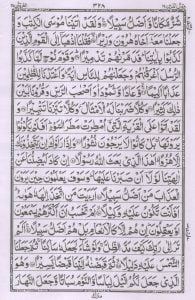 ۳۲۸
شَرٌّ مَّكَانًا وَّاَضَلُّ سَبِيْلًا ۝ وَلَقَدْ اٰتَيْنَا مُوْسَى الْكِتٰبَ وَ
جَعَلْنَا مَعَهٗۤ اَخَاهُ هٰرُوْنَ وَزِيْرًا ۝ فَقُلْنَا اذْهَبَاۤ اِلَى الْقَوْمِ الَّذِيْنَ
كَذَّبُوْا بِاٰيٰتِنَا فَدَمَّرْنٰهُمْ تَدْمِيْرًا ۝ وَقَوْمَ نُوْحٍ لَّمَّا كَذَّبُوا
الرُّسُلَ اَغْرَقْنٰهُمْ وَجَعَلْنٰهُمْ لِلنَّاسِ اٰيَةً وَاَعْتَدْنَا لِلظّٰلِمِيْنَ
عَذَابًا اَلِيْمًا ۝ وَّعَادًا وَّثَمُوْدَا وَاَصْحٰبَ الرَّسِّ وَقُرُوْنًۢا بَيْنَ ذٰلِكَ
كَثِيْرًا ۝ وَكُلًّا ضَرَبْنَا لَهُ الْاَمْثَالَ وَكُلًّا تَبَّرْنَا تَتْبِيْرًا ۝
وَلَقَدْ اَتَوْا عَلَى الْقَرْيَةِ الَّتِيْۤ اُمْطِرَتْ مَطَرَ السَّوْءِ اَفَلَمْ يَكُوْنُوْا
يَرَوْنَهَا بَلْ كَانُوْا لَا يَرْجُوْنَ نُشُوْرًا ۝ وَاِذَا رَاَوْكَ اِنْ يَّتَّخِذُوْنَكَ اِلَّا
هُزُوًا اَهٰذَا الَّذِيْ بَعَثَ اللّٰهُ رَسُوْلًا ۝ اِنْ كَادَ لَيُضِلُّنَا عَنْ
اٰلِهَتِنَا لَوْلَاۤ اَنْ صَبَرْنَا عَلَيْهَا وَسَوْفَ يَعْلَمُوْنَ حِيْنَ يَرَوْنَ
الْعَذَابَ مَنْ اَضَلُّ سَبِيْلًا ۝ اَرَءَيْتَ مَنِ اتَّخَذَ اِلٰهَهٗ هَوٰىهُ
اَفَاَنْتَ تَكُوْنُ عَلَيْهِ وَكِيْلًا ۝ اَمْ تَحْسَبُ اَنَّ اَكْثَرَهُمْ يَسْمَعُوْنَ
اَوْ يَعْقِلُوْنَ اِنْ هُمْ اِلَّا كَالْاَنْعَامِ بَلْ هُمْ اَضَلُّ سَبِيْلًا ۝ اَلَمْ
تَرَ اِلٰى رَبِّكَ كَيْفَ مَدَّ الظِّلَّ وَلَوْ شَآءَ لَجَعَلَهٗ سَاكِنًا ثُمَّ جَعَلْنَا
الشَّمْسَ عَلَيْهِ دَلِيْلًا ۝ ثُمَّ قَبَضْنٰهُ اِلَيْنَا قَبْضًا يَّسِيْرًا ۝ وَهُوَ
الَّذِيْ جَعَلَ لَكُمُ الَّيْلَ لِبَاسًا وَّالنَّوْمَ سُبَاتًا وَّجَعَلَ النَّهَارَ